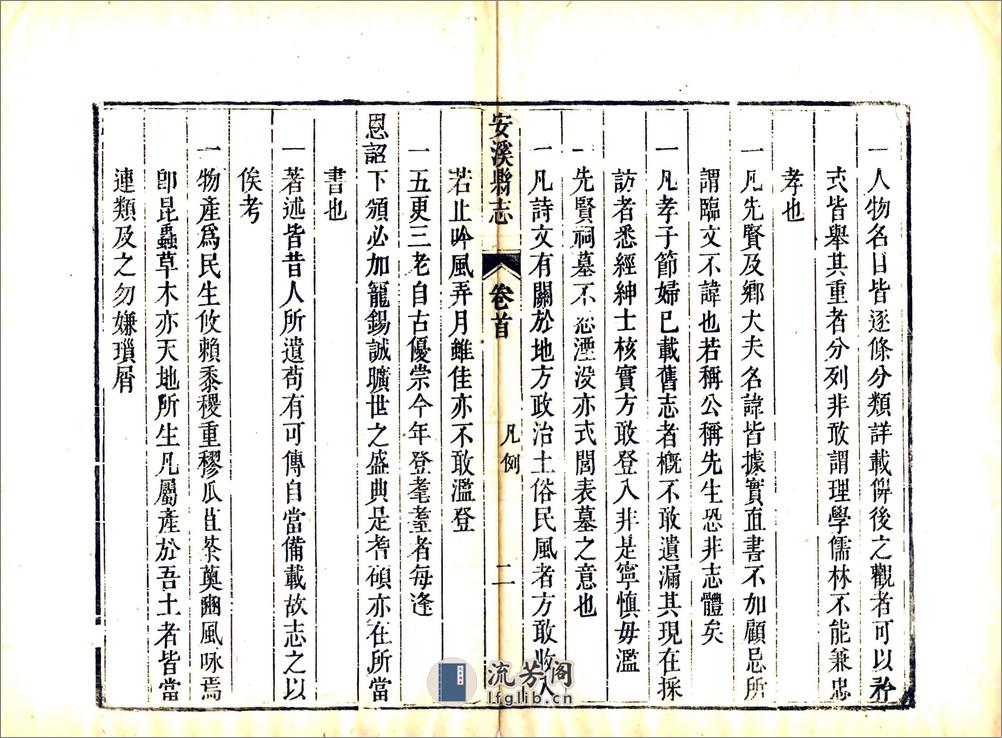 一人物名目皆逐條分類詳載俾後之觀者可以矜
式皆舉其重者分列非敢謂理學儒林不能兼忠
孝也
一凡先賢及鄉大夫名諱皆據實直書不加顧忌所
謂臨文不諱也若稱公稱先生恐非志體矣
一凡孝子節婦已載舊志者概不敢遺漏其現在採
訪者悉經紳士核實方敢登入非是寧慎毋濫
一先賢祠墓不忍湮没亦式閭表墓之意也
一凡詩文有關於地方政治土俗民風者方敢收入
安溪縣志 卷首 凡例 二
若止吟風弄月雖佳亦不敢濫登
一五更三老自古優崇今年登耄耋者每逢
恩詔下頒必加寵錫誠曠世之盛典是耆碩亦在所當
書也
一著述皆昔人所遺苟有可傳自當備載故志之以
俟考
一物產爲民生攸賴黍稷重穋瓜苴荼薁豳風咏焉
卽昆蟲草木亦天地所生凡屬產於吾土者皆當
連類及之勿嫌瑣屑
流芳阁
lfglib.cn